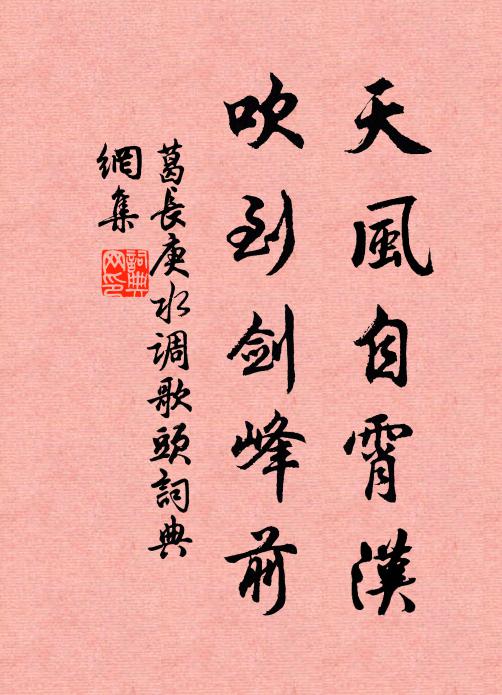 天風自霄漢
吹到劍峰前
葛長庚水调歌頭詞典
網集
詞典网印